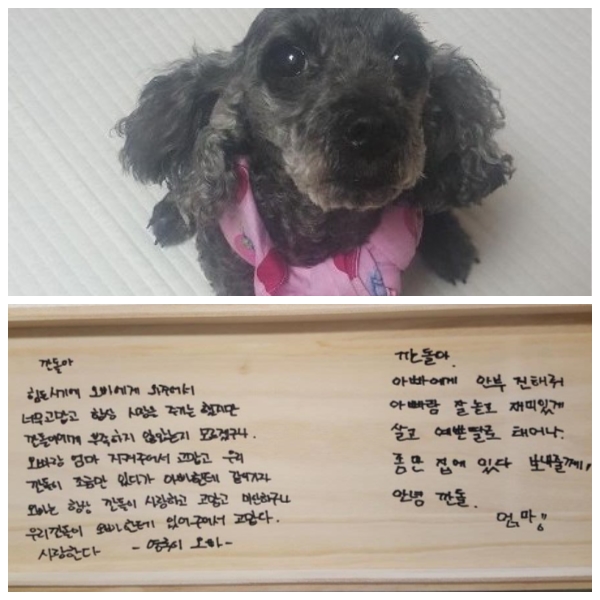 깐돌아
힘든시기에 오빠에게 와줘서
너무고맙고 항상 사랑을 주기는 했지만
깐돌이에게 부족하지 않았는지 모르겠구나.
오빠랑 엄마 지켜주어서 고맙고 우리
깐돌이 조금만 있다가 아빠한테
오빠는 항상 깐돌이 사랑하고 고맙고 미안하구나
우리깐돌이 오빠한테 있어주어서 고맙다.
사랑한다 - 오빠 -
깐돌아.
아빠에게 안부 전해줘
아빠랑 잘놀고 재미있게
살고 예쁜딸로 태어나.
좀만 집에 있다 보내줄께,
안녕 깐돌.
엄마